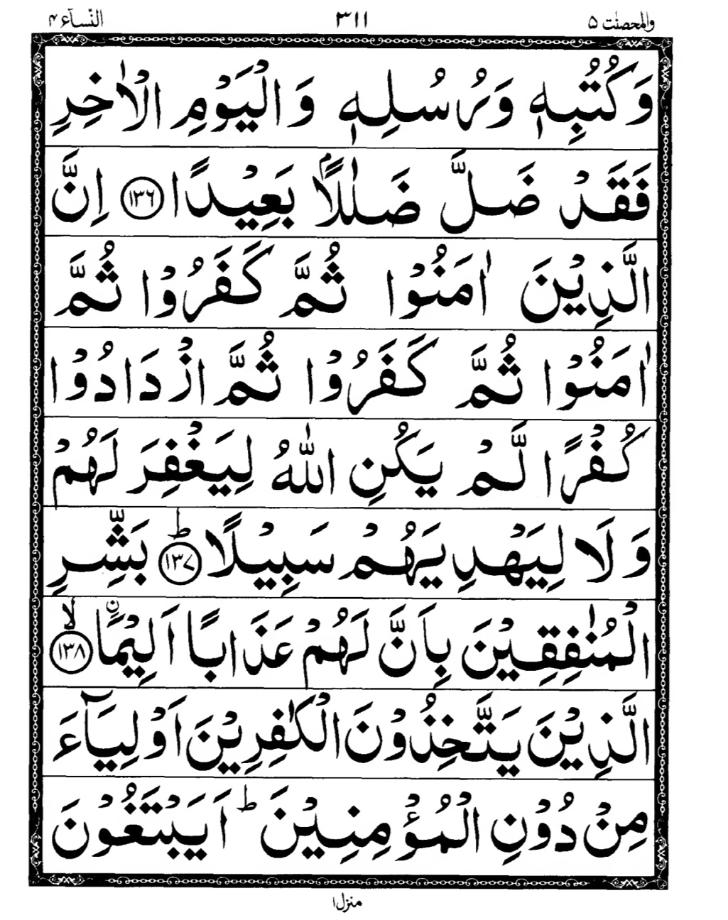 والمحصنت ۵ ۳۱۱ النسآء ۴
وَكُتُبِهٖ وَرُسُلِهٖ وَالْيَوْمِ الْاٰخِرِ
فَقَدْ ضَلَّ ضَلٰلًاۢ بَعِيْدًا ۝۱۳۶ اِنَّ
الَّذِيْنَ اٰمَنُوْا ثُمَّ كَفَرُوْا ثُمَّ
اٰمَنُوْا ثُمَّ كَفَرُوْا ثُمَّ ازْدَادُوْا
كُفْرًا لَّمْ يَكُنِ اللّٰهُ لِيَغْفِرَ لَهُمْ
وَلَا لِيَهْدِيَهُمْ سَبِيْلًا ؕ۝۱۳۷ بَشِّرِ
الْمُنٰفِقِيْنَ بِاَنَّ لَهُمْ عَذَابًا اَلِيْمَاۨ ۙ۝۱۳۸
الَّذِيْنَ يَتَّخِذُوْنَ الْكٰفِرِيْنَ اَوْلِيَآءَ
مِنْ دُوْنِ الْمُؤْمِنِيْنَ ؕ اَيَبْتَغُوْنَ
منزل ۱